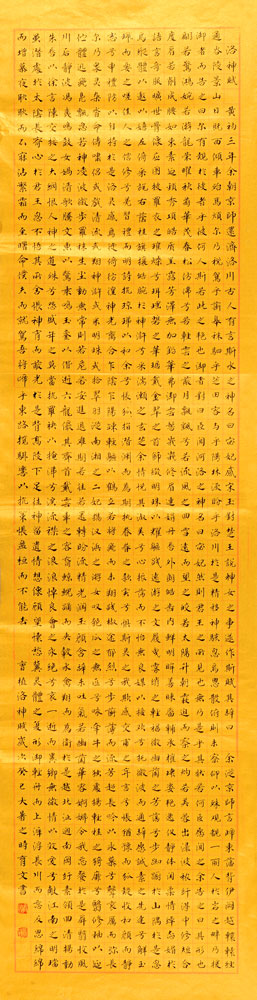 洛神賦 黃初三年余朝京師還濟洛川古人有言斯水之神名曰宓妃感宋玉對楚王說神女之事遂作斯賦其辭曰 余從京師言歸東藩背伊闕越轘轅經
通谷陵景山日既西傾車殆馬煩爾乃稅駕乎蘅皋秣駟乎芝田容與乎陽林流眄乎洛川於是精移神駭忽焉思散俯則未察仰以殊觀睹一麗人于岩之畔乃援
御者而告之曰爾有覿於彼者乎彼何人斯若此之艷也御者對曰臣聞河洛之神名曰宓妃然則君王之所見也無乃是乎其狀若何臣願聞之余告之曰其形也
翩若驚鴻婉若游龍榮曜秋菊華茂春松髣髴兮若輕雲之蔽月飄颻兮若流風之迴雪遠而望之皎若太陽升朝霞迫而察之灼若芙蕖出淥波穠纖得中修短合
度肩若削成腰如束素延頸秀項皓質呈露芳澤無加鉛華弗御雲髻峨峨修眉連娟丹唇外朗皓齒內鮮明眸善睞靨輔承權瓌姿艷逸儀靜體閑柔情綽態媚於
語言奇服曠世骨像應圖披羅衣之璀粲兮珥瑤碧之華琚戴金翠之首飾綴明珠以耀軀踐遠遊之文履曳霧綃之輕裾微幽蘭之芳藹兮步踟躕於山隅於是忽
焉縱體以遨以嬉左倚采旄右蔭桂旗攘皓腕於神滸兮采湍瀨之玄芝余情悅其淑美兮心振蕩而不怡無良媒以接歡兮托微波而通辭願誠素之先達兮解玉
珮而要之嗟佳人之信修兮羌習禮而明詩抗瓊珶以和余兮指潛淵而為期執眷眷之款實兮懼斯靈之我欺感交甫之棄言兮悵猶豫而狐疑收和顏而靜
志兮申禮防以自持於是洛靈感焉徙倚彷徨神光離合乍陰乍陽竦輕軀以鶴立若將飛而未翔踐椒塗之郁烈兮步蘅薄而流芳超長吟以永慕兮聲哀厲而彌長
爾乃眾靈雜沓命儔嘯侶或戲清流或翔神渚或采明珠或拾翠羽從南湘之二妃攜漢濱之游女歎匏瓜之無匹兮詠牽牛之獨處揚輕袿之猗靡兮翳修袖以延
佇體迅飛鳧飄忽若神凌波微步羅襪生塵動無常則若危若安進止難期若往若還轉眄流精光潤玉顏含辭未吐氣若幽蘭華容婀娜令我忘餐於是屏翳收風
川后靜波馮夷鳴鼓女媧清歌騰文魚以警乘鳴玉鸞以偕逝六龍儼其齊首載雲車之容裔鯨鯢踊而夾轂水禽翔而為衛於是越北沚過南岡紆素領迴清揚動
朱唇以徐言陳交接之大綱恨人神之道殊兮怨盛年之莫當抗羅袂以掩涕兮淚流襟之浪浪悼良會之永絕兮哀一逝而異鄉無微情以效愛兮獻江南之明璫
雖潛處於太陰長寄心於君王忽不悟其所舍悵神宵而蔽光於是背高陵下足往神留遺情想像顧望懷愁冀靈體之復形御輕舟而上溯浮長川而忘反思綿綿
而增慕夜耿耿而不寐沾繁霜而至曙命僕夫而就駕吾將歸乎東路攬騑轡以抗策悵盤桓而不能去 曹植洛神賦歲次癸巳大暑之時育文書